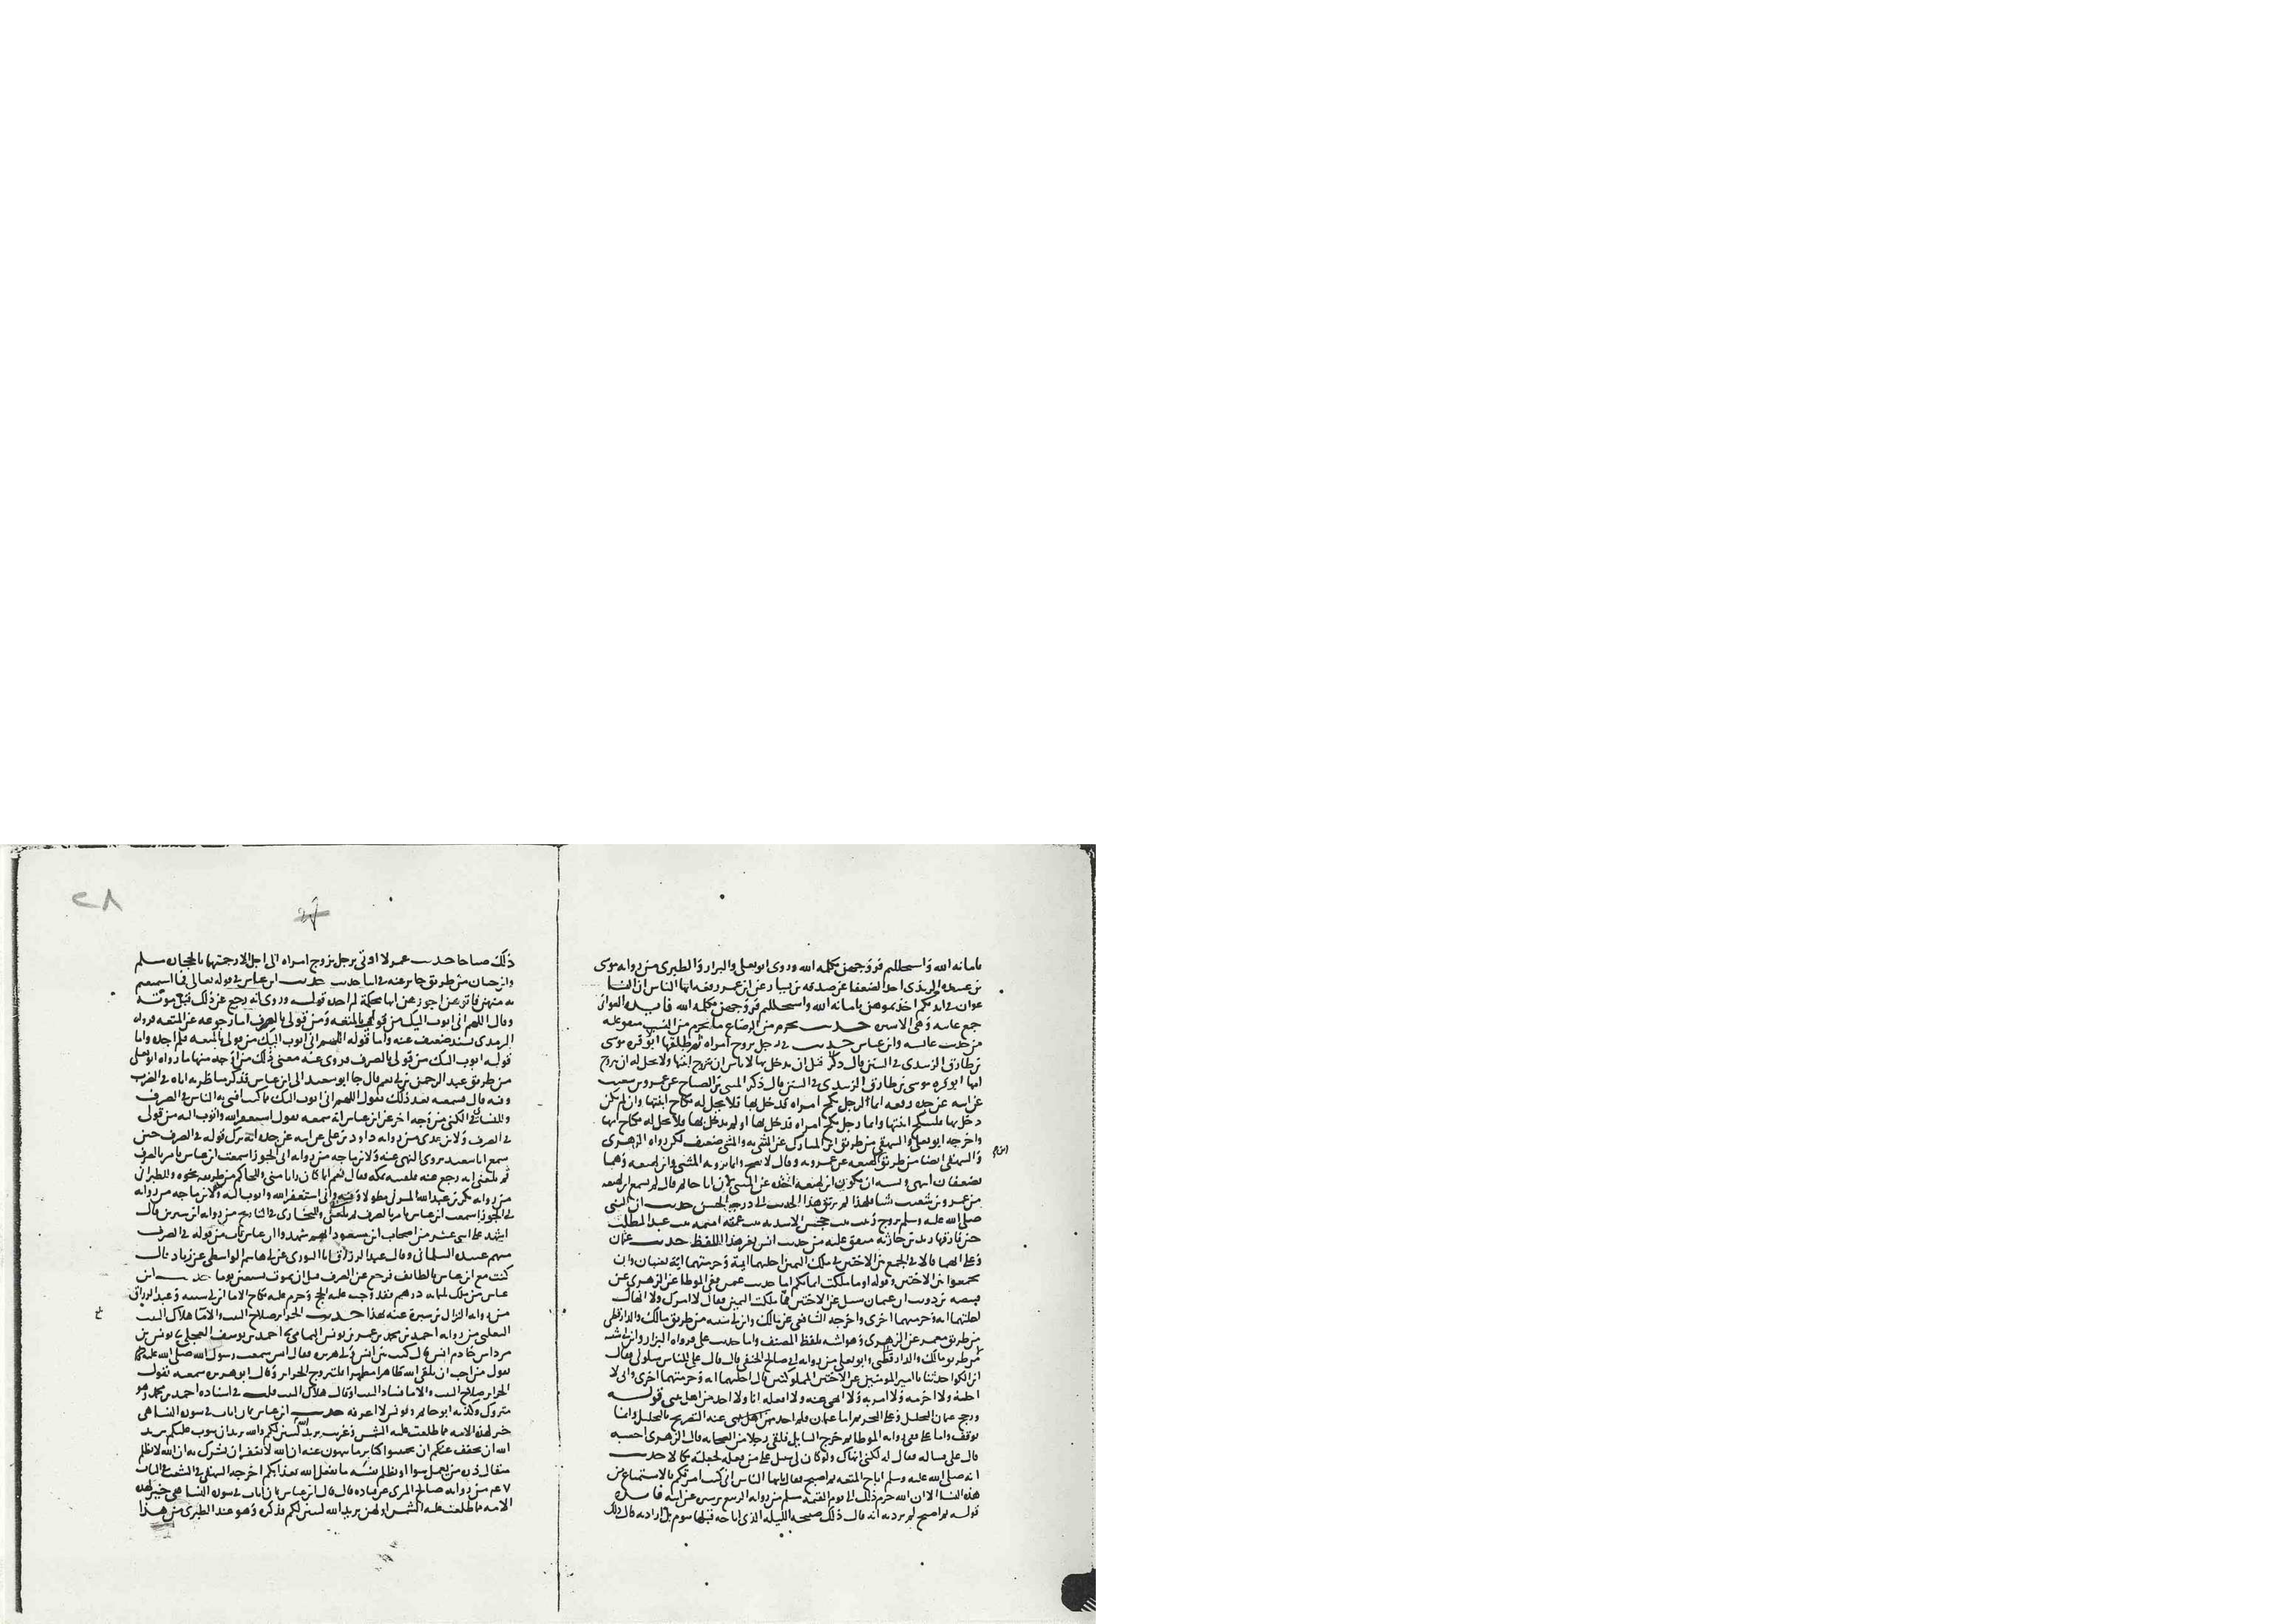 بامانه الله واستحللتم فروجهن بكلمه الله وروى ابو يعلى والبزار والطبرى من روايه موسى
بن عبيده الربذى احد الضعفا عن صدقه بن يسار عن ابن عمر رفعه ايها الناس ان النسا
عوان فى ايديكم اخذتموهن بامانه الله واستحللتم فروجهن بكلمه الله فايده العوانى
جمع عانيه وهى الاسيره حديث يحرم من الرضاع ما يحرم من النسب متفق عليه
من حديث عائشه وابن عباس حديث فى رجل تزوج امراه ثم طلقها ابو قره موسى
بن طارق الزبيدى فى السنن قال ذكر قبل ان يدخل بها لا باس ان يتزوج ابنتها ولا يحل له ان يتزوج
امها ابو قره موسى بن طارق الزبيدى فى السنن قال ذكر المثنى بن الصباح عن عمرو بن شعيب
عن ابيه عن جده رفعه ايما رجل نكح امراه فدخل بها فلا يحل له نكاح ابنتها وان لم يكن
دخل بها فلينكح ابنتها وايما رجل نكح امراه فدخل بها او لم يدخل بها فلا يحل له نكاح امها
واخرجه ابو يعلى والبيهقى من طريق ابن المبارك عن المثنى به والمثنى ضعيف لكن رواه الزهرى
والبيهقى ايضا من طريق ابن لهيعه عن عمرو به وقال لا يصح وانما يرويه المثنى وابن لهيعه وهما
يضعفان انتهى ويشبه ان يكون ابن لهيعه اخذه عن المثنى لان ابا حاتم قال لم يسمع ابن لهيعه
من عمرو بن شعيب شيا فلهذا لم يرتق هذا الحديث الى درجه الحسن حديث ان النبى
صلى الله عليه وسلم تزوج زينب بنت جحش الاسديه بنت عمته اميمه بنت عبد المطلب
حين فارقها زيد بن حارثه متفق عليه من حديث انس بغير هذا اللفظ حديث عثمان
وعلى انهما قالا فى الجمع بين الاختين فى ملك اليمين احلتهما ايه وحرمتهما ايه يعنيان وان
تجمعوا بين الاختين وقوله او ما ملكت ايمانكم اما حديث عمر ففى الموطا عن الزهرى عن
قبيصه بن ذويب ان عثمان سيل عن الاختين مما ملكت اليمين فقال لا امرك ولا انهاك
احلتهما ايه وحرمتهما اخرى واخرجه الشافعى عن مالك وابن ابى شيبه من طريق مالك والدارقطنى
من طريق معمر عن الزهرى وهو اشبه بلفظ المصنف واما حديث على فرواه البزار وابن ابى شيبه
من طريق مالك والدارقطنى وابو يعلى من روايه ابى صالح الحنفى قال قال على للناس سلونى فقال
ابن الكوا حدثنا يا امير المومنين عن الاختين المملوكتين قال احلتهما ايه وحرمتهما اخرى وانى لا
احله ولا احرمه ولا امر به ولا انهى عنه ولا افعله انا ولا احد من اهل بيتى قوله
ورجح عثمان التحليل وعلى التحريم اما عثمان فلم اجد عنه التصريح بالتحليل وانما
توقف واما على ففى روايه الموطا ثم خرج السايل فلقى رجلا من الصحابه قال الزهرى احسبه
قال على فساله فقال له لكنى انهاك ولو كان لى سبيل على من فعله لجعلته نكالا حديث
انه صلى الله عليه وسلم اباح المتعه ثم اصبح فقال يايها الناس انى كنت امرتكم بالاستمتاع من
هذه النسا الا ان الله حرم ذلك الى يوم القيمه مسلم من روايه الربيع بن سبره عن ابيه فايده
قوله ثم اصبح لم يرد به انه قال ذلك صبيحه الليله الذى اباحه قبلها بيوم بل اراد به قال ذلك
ذلك صباحا حديث عمر لا اوتى برجل تزوج امراه الى اجل الا رجمتهما بالحجاره مسلم
وابن حبان من طريق جابر عنه فى اثنا حديث حديث ابن عباس فى قوله تعالى فما استمتعتم
به منهن فاتوهن اجورهن انها محكمة لم اجده قوله وروى انه رجع عن ذلك قبل موته
وقال اللهم انى اتوب اليك من قولى بالمتعه ومن قولى بالصرف اما رجوعه عن المتعه فرواه
الترمذى بسند ضعيف عنه واما قوله اللهم انى اتوب اليك من قولى بالمتعه فلم اجده واما
قوله اتوب اليك من قولى بالصرف فروى عنه معنى ذلك من اوجه منها ما رواه ابو يعلى
من طريق عبد الرحمن بن ابى نعم قال جا ابو سعيد الى ابن عباس فذكر مناظرته اياه فى الصرف
وفيه قال فسمعته بعد ذلك يقول اللهم انى اتوب اليك مما كنت افتى به الناس فى الصرف
وللنسائى فى الكنى من وجه اخر عن ابن عباس انه سمعه يقول استغفر الله واتوب اليه من قولى
فى الصرف ولابن عدى من روايه داود بن على عن ابيه عن جده انه ترك قوله فى الصرف حين
سمع ابا سعيد يروى النهى عنه ولابن ماجه من روايه ابى الجوزا سمعت ابن عباس يامر بالصرف
ثم بلغنى انه رجع عنه فلقيته بمكه فقال نعم انما كان رايا منى وللحاكم من طريقه نحوه وللطبرانى
من روايه بكر بن عبد الله المزنى مطولا وفيه وانى استغفر الله واتوب اليه ولابن ماجه من روايه
ابى الجوزا سمعت ابن عباس يامر بالصرف ثم بلغنى وللبخارى فى التاريخ من روايه ابن سيرين قال
اشهد على اثنى عشر من اصحاب ابن مسعود انهم شهدوا ان ابن عباس تاب من قوله فى الصرف
منهم عبيده السلمانى وقال عبد الرزاق انا الثورى عن ابى هاشم الواسطى عن زياد قال
كنت مع ابن عباس بالطائف فرجع عن الصرف قبل ان يموت بسبعين يوما حديث ابن
عباس من ملك ثلثمايه درهم فقد وجب عليه الحج وحرم عليه نكاح الاما ابن ابى شيبه وعبد الرزاق
من روايه النزال بن سبرة عنه بهذا حديث الحراير صلاح البيت والاما هلاك البيت
الثعلبى من روايه احمد بن محمد بن عمر بن يونس اليمامى نا احمد بن يوسف العجلى نا يونس بن
مرداس خادم انس قال كنت بين انس وابى هريره فقال انس سمعت رسول الله صلى الله عليه وسلم
يقول من احب ان يلقى الله طاهرا مطهرا فليتزوج الحراير وقال ابو هريره سمعته يقول
الحراير صلاح البيت والاما فساد البيت او قال هلاك البيت قلت فى اسناده احمد بن محمد وهو
متروك وكذبه ابو حاتم ويونس لا اعرفه حديث ابن عباس ثمان ايات فى سورة النسا هى
خير لهذه الامه مما طلعت عليه الشمس وغربت يريد الله ليبين لكم والله يريد ان يتوب عليكم يريد
الله ان يخفف عنكم ان تجتنبوا كباير ما تنهون عنه ان الله لا يغفر ان يشرك به ان الله لا يظلم
مثقال ذره من يعمل سوا او يظلم نفسه ما يفعل الله بعذابكم اخرجه البيهقى فى الشعب فى الباب
٧ع من روايه صالح المرى عن قتاده قال قال ابن عباس ثمان ايات فى سوره النسا هى خير لهذه
الامه مما طلعت عليه الشمس اولهن يريد الله ليبين لكم فذكره وهو عند الطبرى من هذا